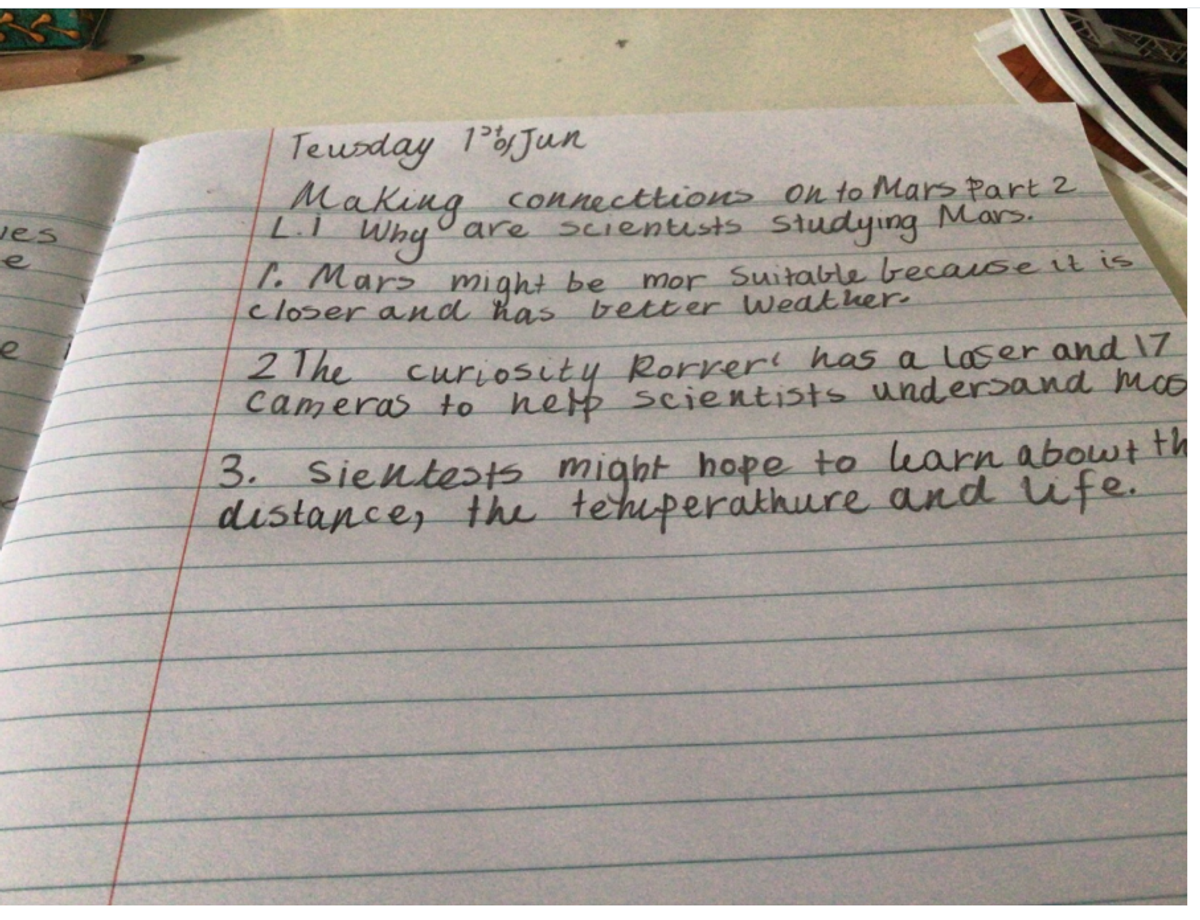 ies
e
e
Teusday 1st of Jun
Making connecttions on to Mars Part 2
L.I Why are scientists studying Mars.
1. Mars might be mor suitable because it is
closer and has better weather.
2 The curiosity Rorrer' has a laser and 17
cameras to help scientists undersand
3. Sientests might hope to learn abowt th
distance, the temperathure and life.